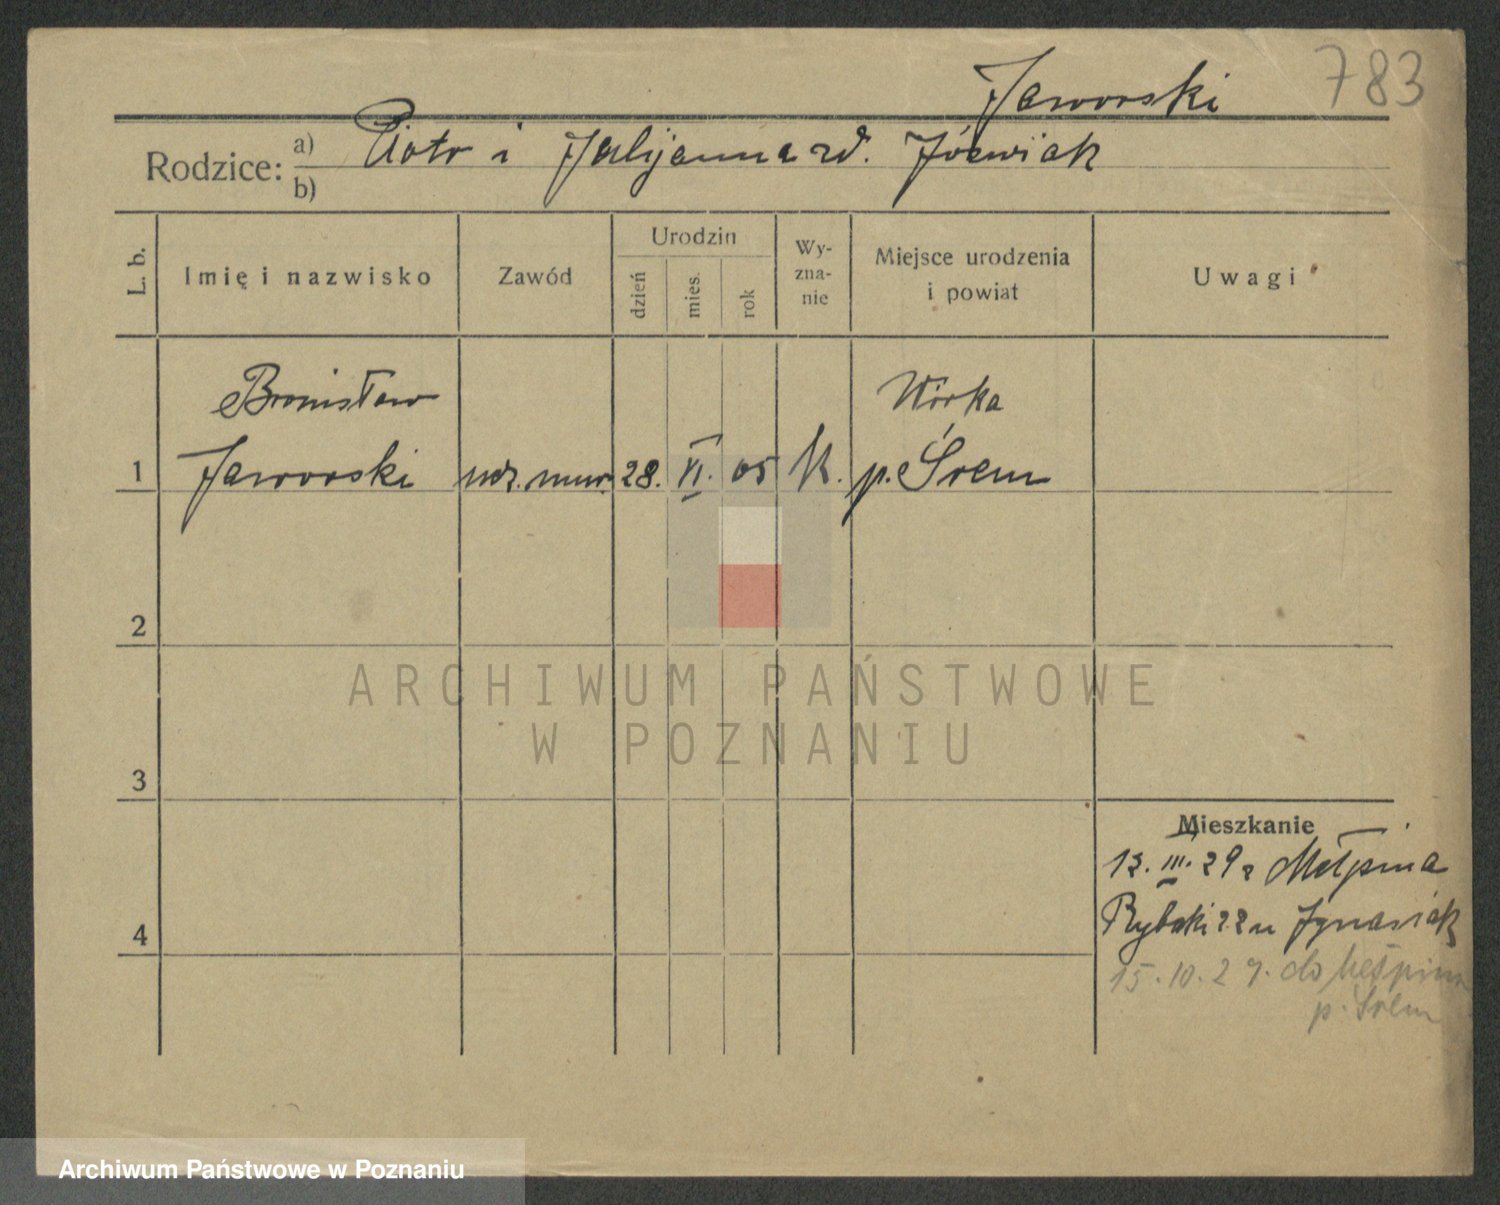 783
Jaworski
Rodzice: a) Piotr i Julijanna zd. Józwiak
b)
L. b.
Imię i nazwisko
Zawód
Urodzin
dzień
mies.
rok
Wy-
zna-
nie
Miejsce urodzenia
i powiat
Uwagi
Bronisław
Wórka
1 Jaworski ucz. mur. 28. VI. 05 K. p. Śrem
2
ARCHIWUM PAŃSTWOWE
W POZNANIU
3
Mieszkanie
12. III. 29 z Mełpina
Rybaki 22 u Ignasiak
4
15.10.29. do Mełpina
p. Śrem
Archiwum Państwowe w Poznaniu